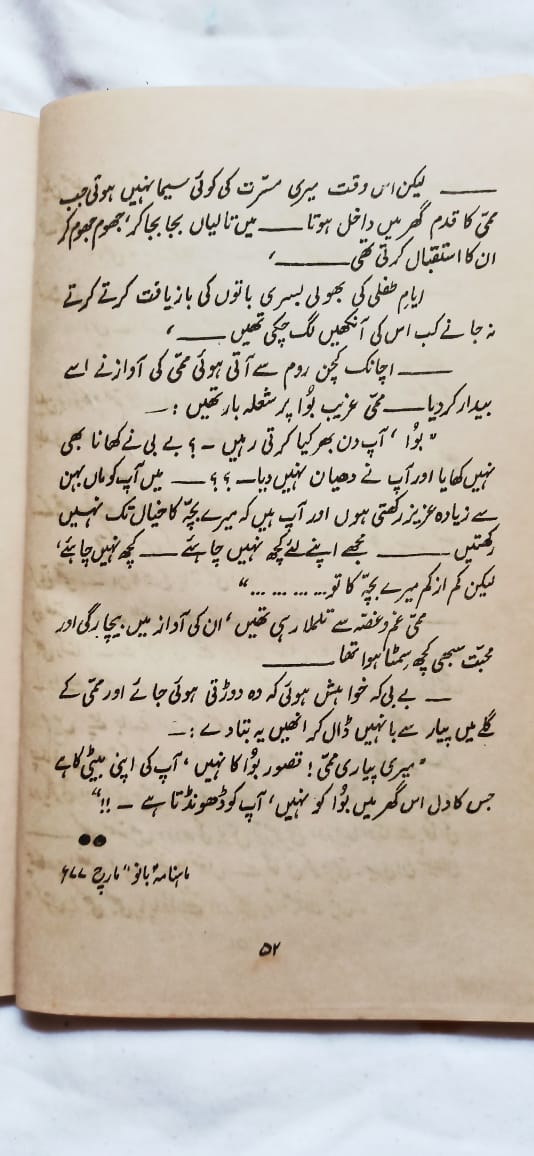 ——— لیکن اس وقت میری مسرّت کی کوئی سیما نہیں ہوتی جب
ممّی کا قدم گھر میں داخل ہوتا —— میں تالیاں بجا بجا کر، جھوم جھوم کر
ان کا استقبال کرتی تھی ———،
ایامِ طفلی کی بھولی بسری باتوں کی بازیافت کرتے کرتے
نہ جانے کب اس کی آنکھیں لگ چکی تھیں ——،
——— اچانک کچن روم سے آتی ہوئی ممّی کی آواز نے اسے
بیدار کر دیا —— ممّی غریب بوُا پر شعلہ بار تھیں :—
"بوُا ، آپ دن بھر کیا کرتی رہیں -؟ بے بی نے کھانا بھی
نہیں کھایا اور آپ نے دھیان نہیں دیا -؟؟ —— میں آپ کو ماں بہن
سے زیادہ عزیز رکھتی ہوں اور آپ ہیں کہ میرے بچّہ کا خیال تک نہیں
رکھتیں ——— مجھے اپنے لئے کچھ نہیں چاہئے —— کچھ نہیں چاہئے،
لیکن کم از کم میرے بچّہ کا تو... ... ... ..."
ممّی غم و غصّہ سے تلملا رہی تھیں ، ان کی آواز میں بیچارگی اور
محبّت سبھی کچھ سِمٹا ہوا تھا ———
— بے بی کہ خواہش ہوئی کہ وہ دوڑتی ہوئی جائے اور ممّی کے
گلے میں پیار سے بانہیں ڈال کر انھیں یہ بتا دے :—
"میری پیاری ممّی ! قصور بوُا کا نہیں ، آپ کی اپنی بیٹی کا ہے
جس کا دل اس گھر میں بوُا کو نہیں ، آپ کو ڈھونڈتا ہے - !!"
●●
ماہنامہ "بانو" مارچ ۷۷ء
۵۲